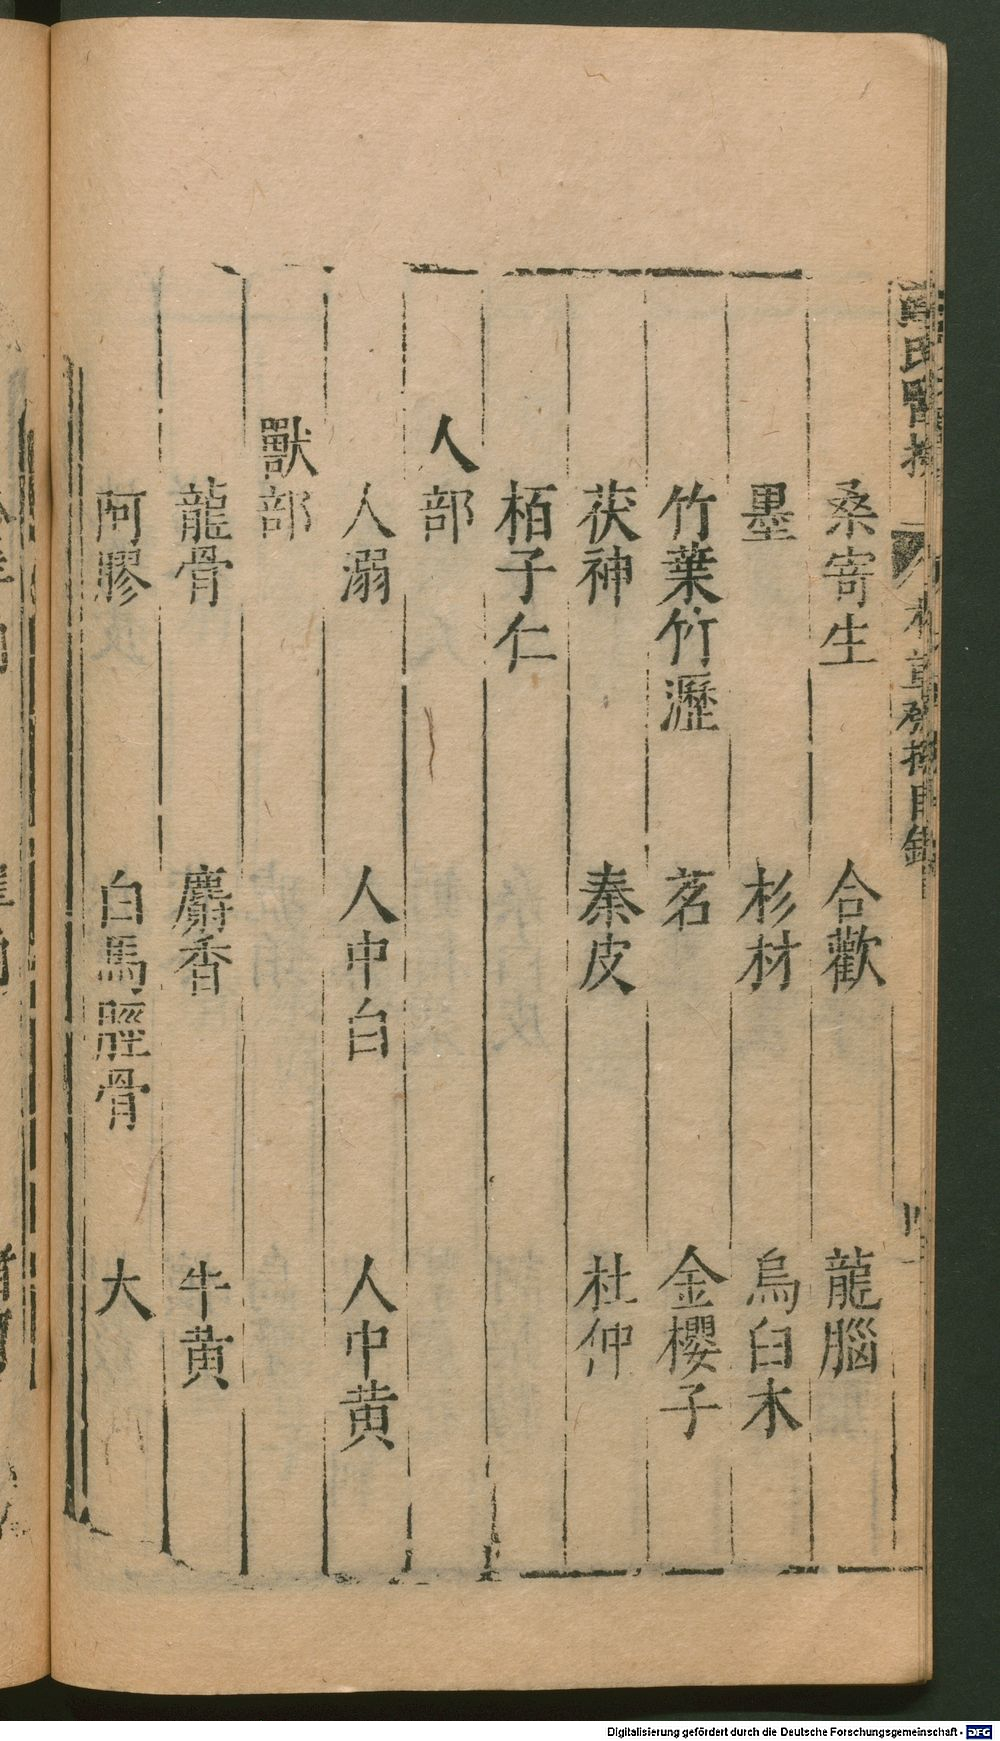 桑寄生　合歡　龍腦
墨　杉材　烏臼木
竹葉竹瀝　茗　金櫻子
茯神　秦皮　杜仲
栢子仁
人部
人溺　人中白　人中黄
獸部
龍骨　麝香　牛黄
阿膠　白馬脛骨　大
Digitalisierung gefördert durch die Deutsche Forschungsgemeinschaft - DFG